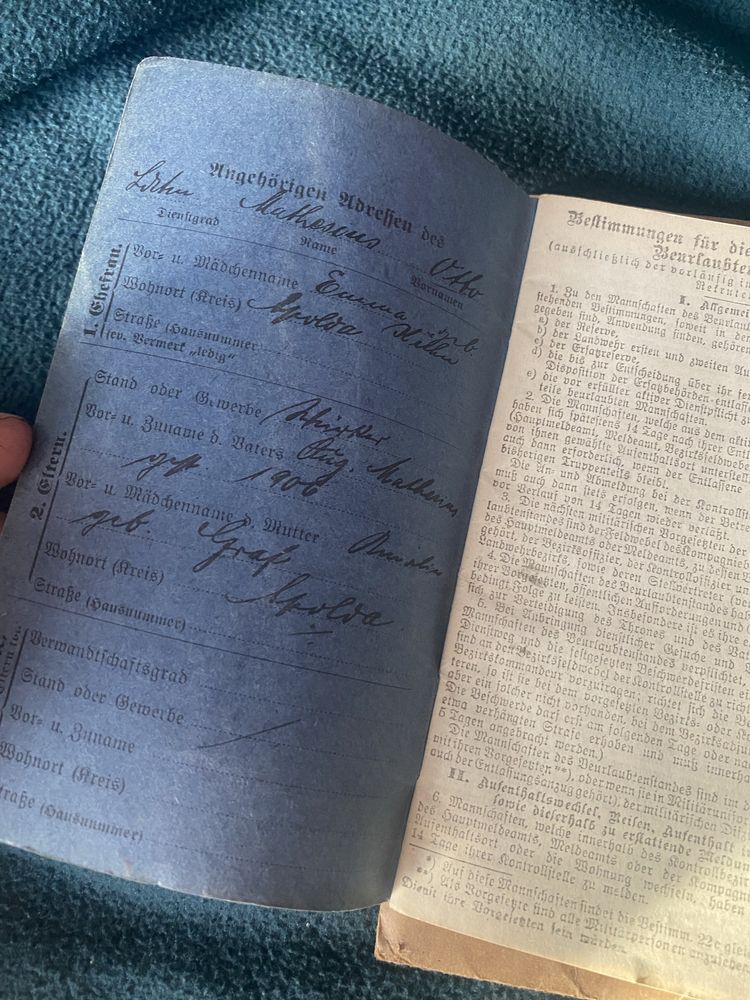 Angehörigen Adressen des
Mathaeus Otto
Dienstgrad Name Vornamen
1. Ehefrau.
Vor- u. Mädchenname Emma geb.
Wohnort (Kreis) Apolda
Straße (Hausnummer)
(ev. Vermerk „ledig“
2. Eltern.
Stand oder Gewerbe Wirker
Vor- u. Zuname d. Vaters Aug.
gest. 1906
Vor- u. Mädchenname d. Mutter
geb. Graf
Wohnort (Kreis) Apolda
Straße (Hausnummer)
Verwandtschaftsgrad
Stand oder Gewerbe
Vor- u. Zuname
Wohnort (Kreis)
traße (Hausnummer)
Bestimmungen für die
Beurlaubte
(ausschließlich der vorläufig i
Rekrute
I. Allgeme
1. Zu den Mannschaften des Beurlau
stehenden Bestimmungen, soweit in den
gegeben sind, Anwendung finden, gehören
a) der Reserve,
b) der Landwehr ersten und zweiten Au
c) der Ersatzreserve,
d) die bis zur Entscheidung über ihr fer
Disposition der Ersatzbehörden entlas
e) die vor erfüllter aktiver Dienstpflicht
teile beurlaubten Mannschaften.
2. Die Mannschaften, welche aus dem akti
haben sich spätestens 14 Tage nach ihrer Entl
(Hauptmeldeamt, Meldeamt, Bezirksfeldwebel
von ihnen gewählte Aufenthaltsort unterstellt
auch dann erforderlich, wenn der Entlassene
bisherigen Truppenteils bleibt.
Die An- und Abmeldung bei der Kontrollst
muß auch dann stets erfolgen, wenn der Betr
vor Verlauf von 14 Tagen wieder verläßt.
3. Die nächsten militärischen Vorgesetzten der
laubtenstandes sind der Feldwebel des Kompagnieb
des Hauptmeldeamts oder Meldeamts, zu dessen
gehört, der Bezirksoffizier, der Kontrolloffizier un
Landwehrbezirks, sowie deren Stellvertreter
4. Die Mannschaften des Beurlaubtenstandes haben
ihrer Vorgesetzten, öffentlichen Aufforderungen und
bedingt Folge zu leisten. Insbesondere ist es ihre
sich zur Verteidigung des Thrones und des Va
5. Bei Anbringung dienstlicher Gesuche und
Mannschaften des Beurlaubtenstandes verpflichtet,
Dienstweg und die festgesetzten Beschwerdefristen e
sind an den Bezirksfeldwebel der Kontrollstelle zu rich
Bezirkskommandeur vorzutragen; richtet sich die B
teren, so ist sie bei dem vorgesetzten Bezirks- oder
aber ein solcher nicht vorhanden, bei dem Bezirksadju
Die Beschwerde darf erst am folgenden Tage oder nach
etwa verhängten Strafe erhoben und muß innerh
5 Tagen angebracht werden.)
Die Mannschaften des Beurlaubtenstandes sind im
mit ihren Vorgesetzten**), oder wenn sie in Militäruniform
auch der Entlassungsanzug gehört), der militärischen Disz
II. Aufenthaltswechsel, Reisen, Aufenthalt
sowie dieserhalb zu erstattende Meldun
6. Mannschaften, welche innerhalb des Kontrollbezir
des Hauptmeldeamts, Meldeamts oder der Kompagni
Aufenthaltsort oder die Wohnung wechseln, haben
14 Tage ihrer Kontrollstelle zu melden.
*) Auf diese Mannschaften findet die Bestimm. 22c glei
**) Als Vorgesetzte sind alle Militärpersonen anzusehen
Dienst ihre Vorgesetzten sein würden.